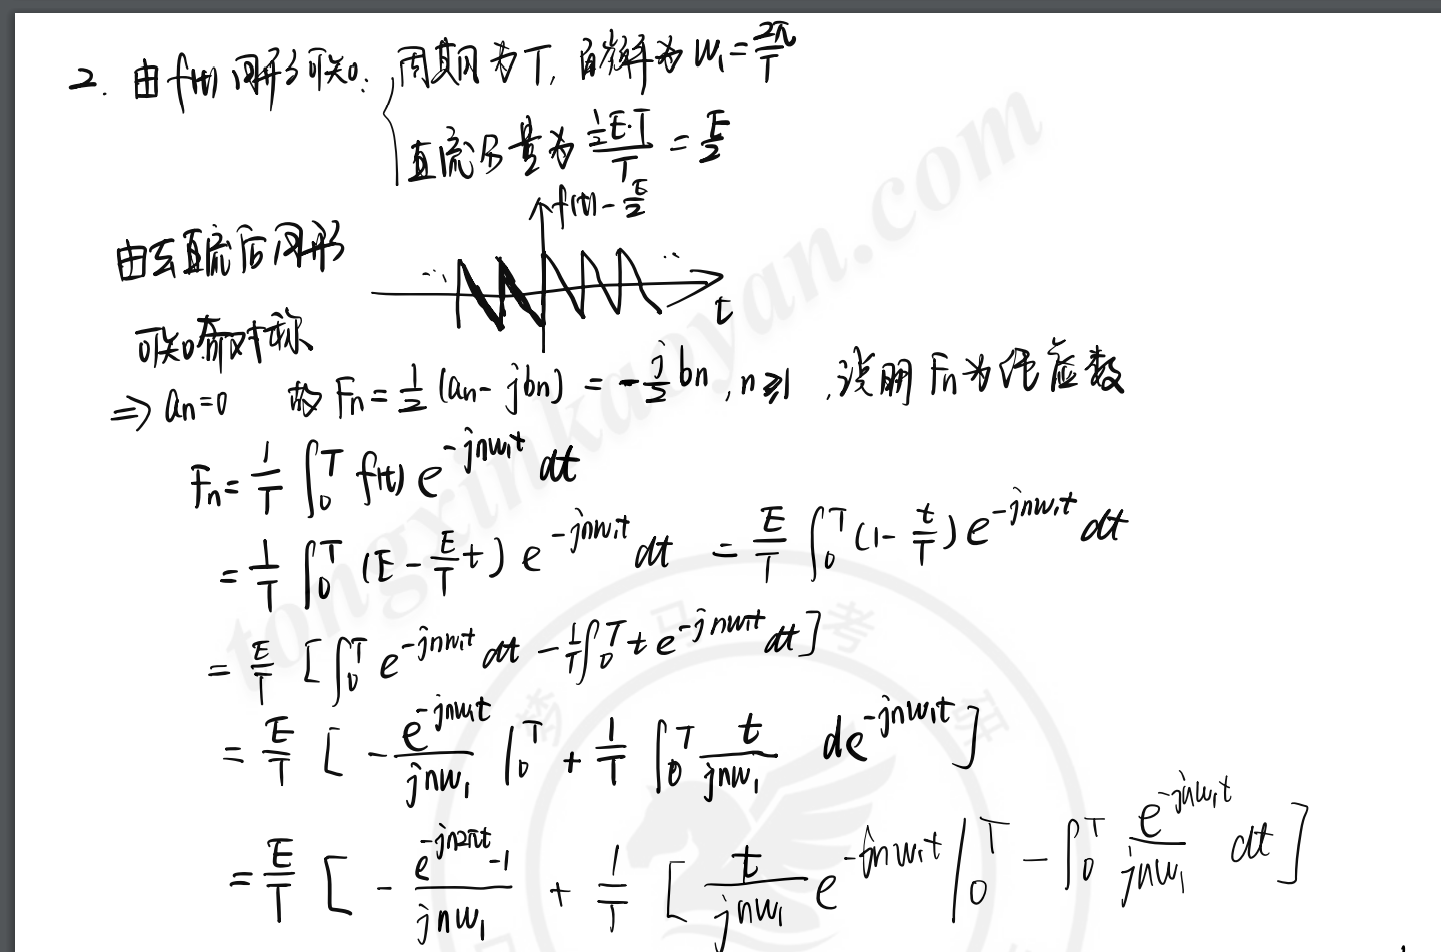 2. 由f(t)图形可知: 周期为T, 角频率为 w₁ = 2π/T
直流分量为 (½E·T)/T = E/2
f(t) - E/2
由去直流后图形
t
可知奇对称
⇒ an = 0 故 Fn = ½(an - jbn) = -j/2 bn, n ≥ 1, 说明 Fn为纯虚数
Fn = 1/T ∫₀ᵀ f(t) e^{-jnw₁t} dt
= 1/T ∫₀ᵀ (E - E/T t) e^{-jnw₁t} dt = E/T ∫₀ᵀ (1 - t/T) e^{-jnw₁t} dt
= E/T [∫₀ᵀ e^{-jnw₁t} dt - 1/T ∫₀ᵀ t e^{-jnw₁t} dt]
= E/T [ - e^{-jnw₁t}/(jnw₁) |₀ᵀ + 1/T ∫₀ᵀ t/(jnw₁) de^{-jnw₁t} ]
= E/T [ - (e^{-jn2πt} - 1)/(jnw₁) + 1/T [ t/(jnw₁) e^{-jnw₁t} |₀ᵀ - ∫₀ᵀ e^{-jnw₁t}/(jnw₁) dt ]
tongxinkaoyan.com